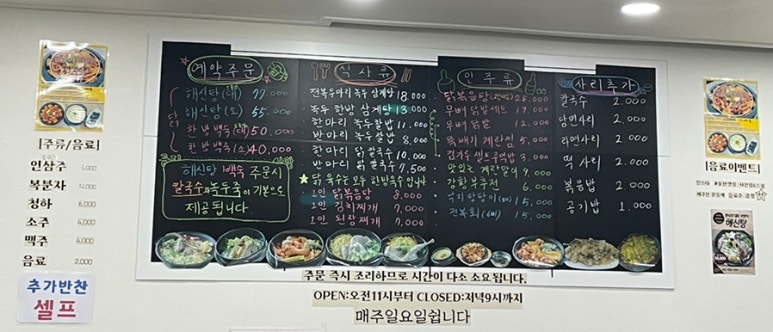 |주류/음료|
인삼주
복분자
청하 6,000
소주 4,000
맥주 4,000
음료 2,000
추가반찬
셀프
예약주문
닭
해신탕(대) 77.000
해신탕(소) 55.000
한방백숙(대) 50.000
한방백숙(소) 40.000
해신탕 백숙 주문시
칼국수와 녹두죽이 기본으로
제공됩니다.
식사류
전복두마리 녹두 삼계탕 18.000
녹두 한방 삼계탕 13.000
한마리 녹두찰밥 11.000
반마리 녹두찰밥 8.000
한마리 닭 칼국수 10.000
반마리 닭 칼국수 7.500
★ 닭육수는 모두 한방육수입니다
1인 닭볶음탕 8,000
1인 김치찌개 7,000
1인 된장찌개 7,000
안주류
무뼈 닭발 12.000
뚝배기 계란찜 5.000
김가루 셀프주먹밥 3,000
맛있는 계란말이 9,000
사리추가
칼국수 2.000
당면사리 2.000
라면사리 2.000
떡 사리 2.000
볶음밥 2.000
공기밥 1.000
주문 즉시 조리하므로 시간이 다소 소요됩니다.
OPEN:오전11시부터 CLOSED:저녁9시까지
매주일요일쉽니다
|음료이벤트|
해신탕